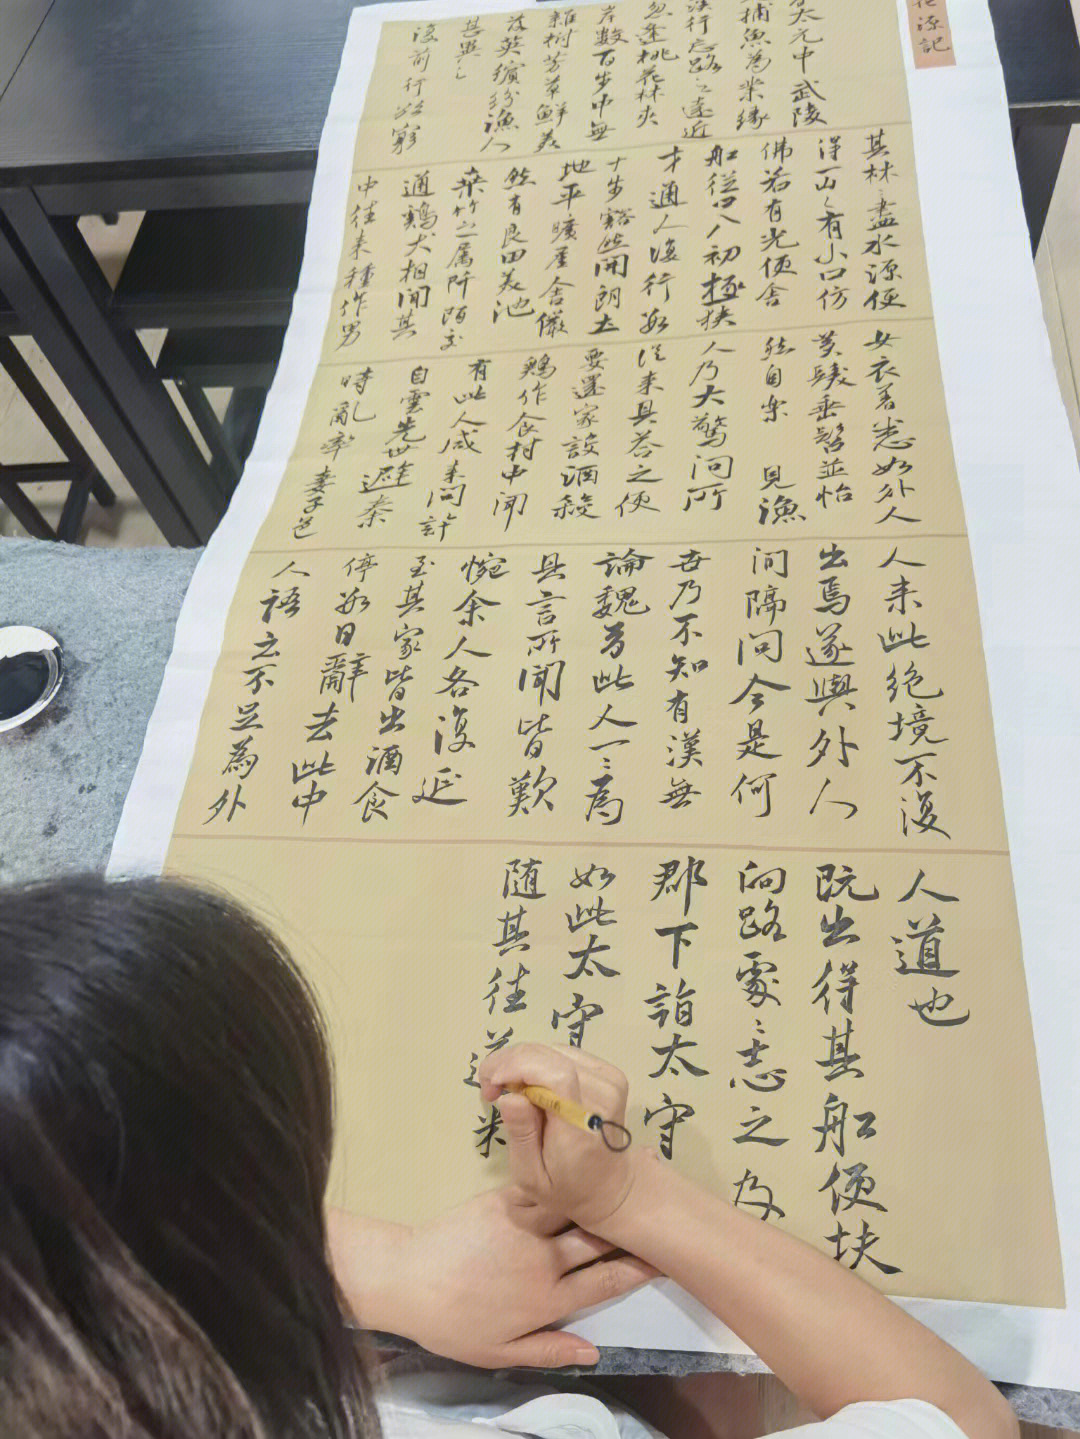 花源記
太元中武陵
捕魚為業緣
溪行忘路之遠近
忽逢桃花林夾
岸數百步中無
雜樹芳草鮮美
落英繽紛漁人
甚異之
復前行欲窮
其林〻盡水源便
得一山〻有小口仿
佛若有光便舍
船從口入初極狹
才通人復行數
十步豁然開朗土
地平曠屋舍儼
然有良田美池
桑竹之属阡陌交
通鷄犬相聞其
中往来種作男
女衣著悉如外人
黄髮垂髫並怡
然自樂 見漁
人乃大驚問所
從来具答之便
要還家設酒殺
鷄作食村中聞
有此人咸来問訊
自雲先世避秦
時亂率妻子邑
人来此絶境不復
出焉遂與外人
間隔問今是何
世乃不知有漢無
論魏晉此人一〻為
具言所聞皆歎
惋余人各復延
至其家皆出酒食
停數日辭去此中
人語云不足為外
人道也
既出得其船便扶
向路處〻志之及
郡下詣太守
如此太守
隨其往